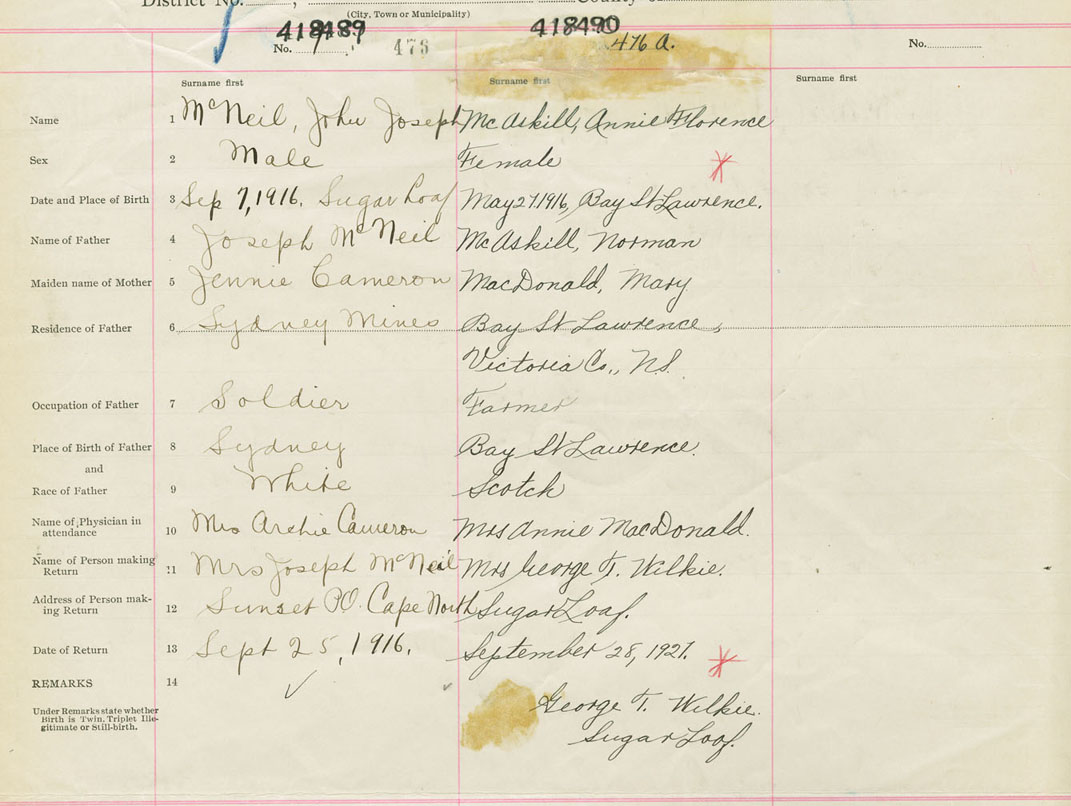 District No. , County of
(City, Town or Municipality)
418489 418490
No. 476 476 A. No.
Surname first Surname first Surname first
Name 1 McNeil, John Joseph McAskill, Annie Florence
Sex 2 Male Female
Date and Place of Birth 3 Sep 7, 1916. Sugar Loaf May 27. 1916, Bay St Lawrence.
Name of Father 4 Joseph McNeil McAskill, Norman
Maiden name of Mother 5 Jennie Cameron MacDonald, Mary
Residence of Father 6 Sydney Mines Bay St Lawrence,
Victoria Co., N.S.
Occupation of Father 7 Soldier Farmer
Place of Birth of Father 8 Sydney Bay St Lawrence.
and
Race of Father 9 White Scotch
Name of Physician in
attendance 10 Mrs Archie Cameron Mrs Annie MacDonald.
Name of Person making
Return 11 Mrs Joseph McNeil Mrs George T. Wilkie.
Address of Person mak-
ing Return 12 Sunset P.O. Cape North Sugar Loaf.
Date of Return 13 Sept 25, 1916. September 28, 1927.
REMARKS 14
Under Remarks state whether
Birth is Twin, Triplet Ille-
gitimate or Still-birth.
George T. Wilkie.
Sugar Loaf.